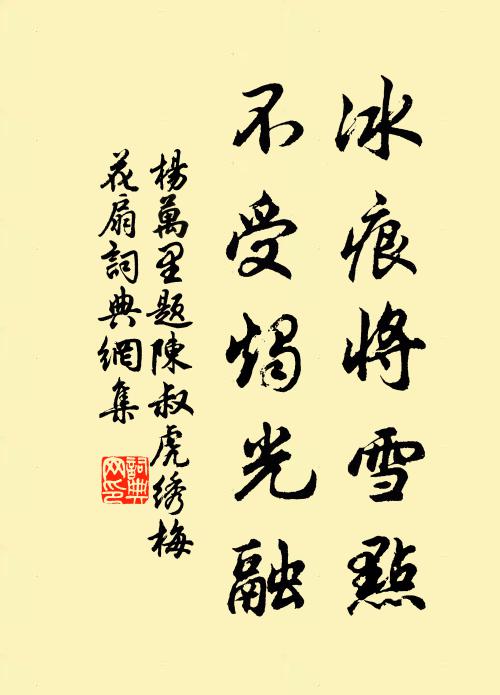 冰痕將雪點
不受燭光融
楊萬里題陳叔虎绣梅
花扇詞典網集
詞典
网印